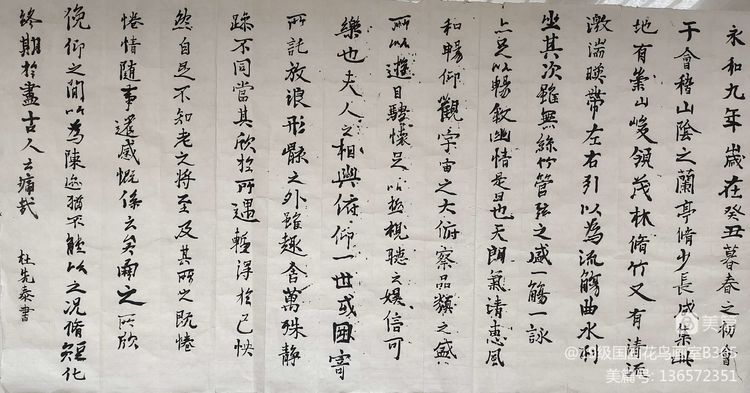 永和九年歲在癸丑暮春之初會
于會稽山陰之蘭亭脩少長咸集此
地有崇山峻領茂林脩竹又有清流
激湍暎帶左右引以為流觴曲水列
坐其次雖無絲竹管弦之盛一觴一詠
亦足以暢敘幽情是日也天朗氣清惠風
和暢仰觀宇宙之大俯察品類之盛
所以遊目騁懷足以極視聽之娛信可
樂也夫人之相與俯仰一世或因寄
所託放浪形骸之外雖趣舍萬殊靜
躁不同當其欣於所遇暫得於己怏
然自足不知老之將至及其所之既惓
惓情隨事遷感慨係之矣向之所欣
俛仰之閒以為陳迹猶不能以之况脩短化
終期於盡古人云痛哉
杜先泰書
美篇
@初级国画花鸟画室B365
美篇号: 136572351